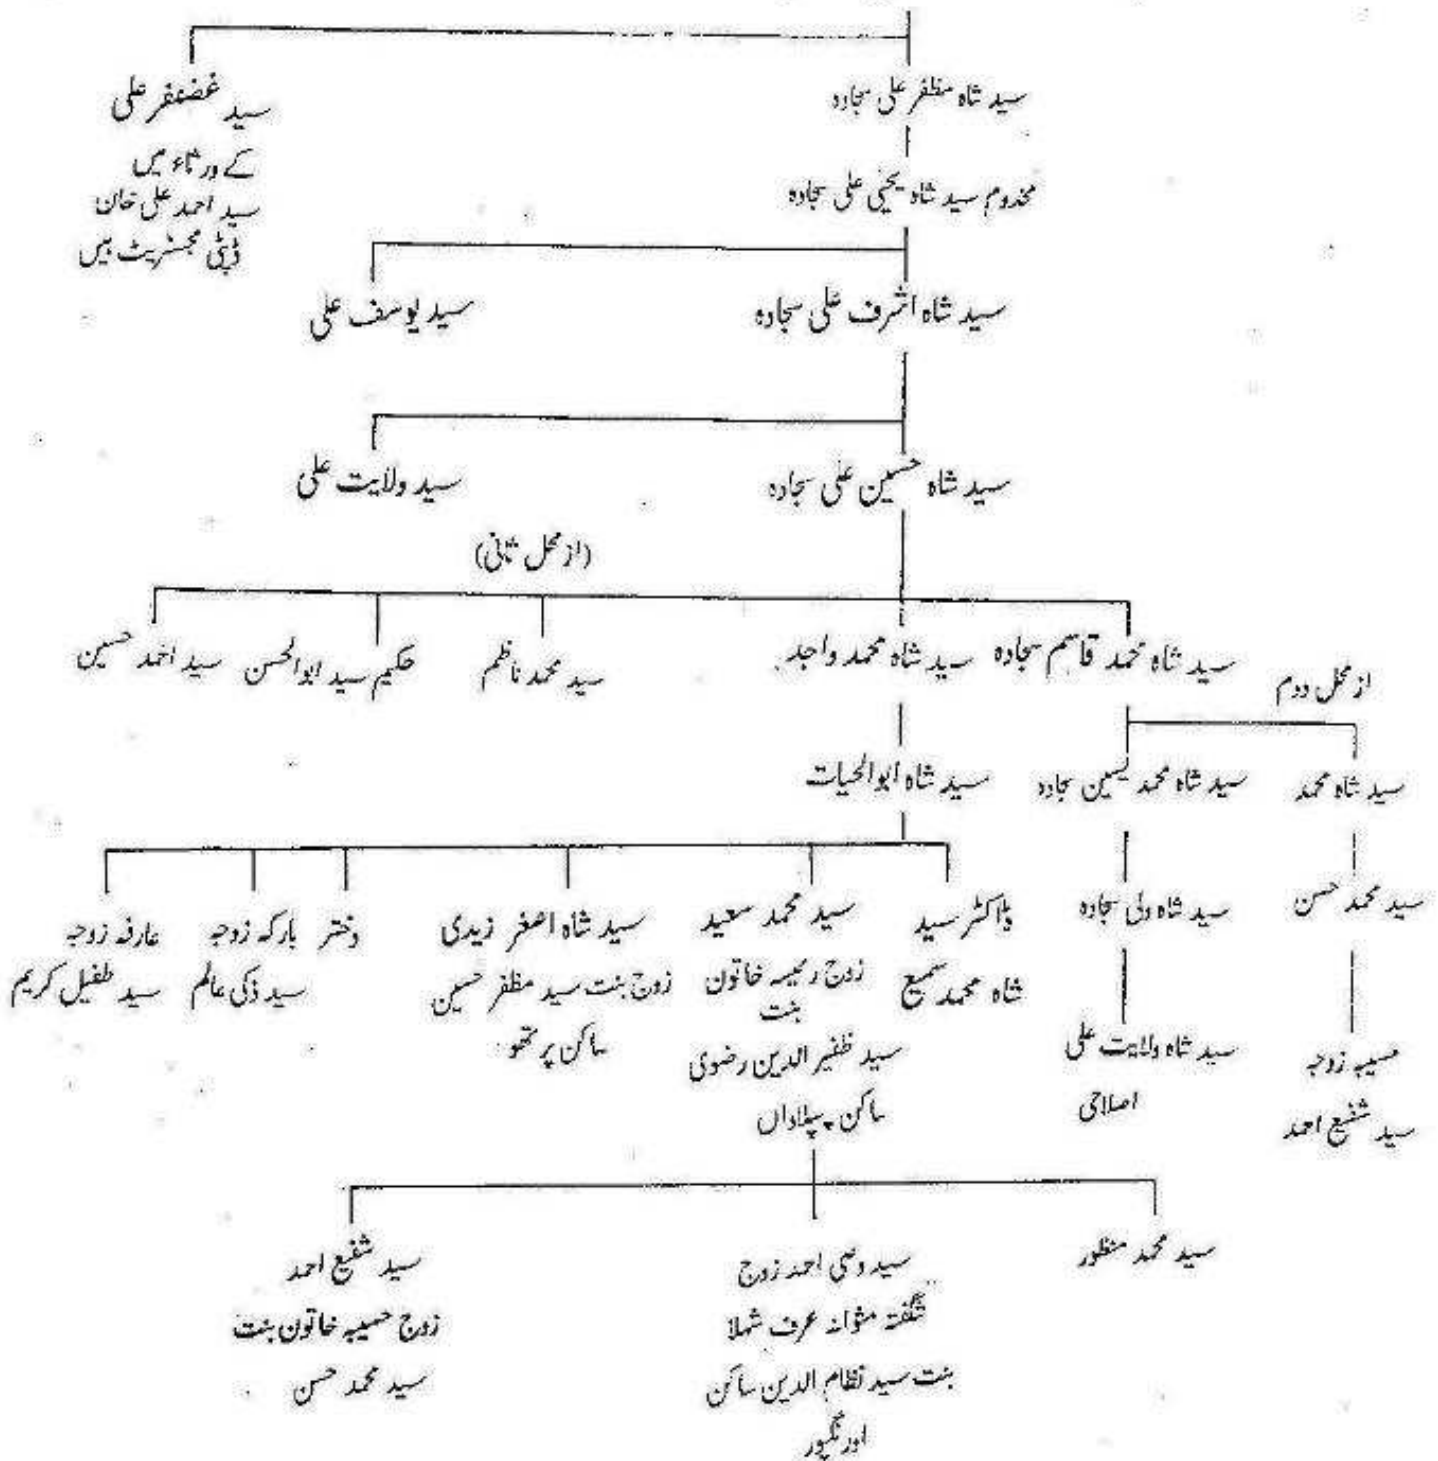 سید شاہ مظفر علی سجادہ
سید غضنفر علی
کے ورثاء میں
سید احمد علی خان
ڈپٹی مجسٹریٹ ہیں
مخدوم سید شاہ یحیٰی علی سجادہ
سید شاہ اشرف علی سجادہ
سید یوسف علی
سید شاہ حسین علی سجادہ
سید ولایت علی
(از محل ثانی)
سید شاہ محمد قاسم سجادہ
سید شاہ محمد واجد
سید محمد ناظم
حکیم سید ابوالحسن
سید احمد حسین
از محل دوم
سید شاہ محمد
سید شاہ محمد یسین سجادہ
سید شاہ ابوالحیات
سید محمد حسن
سید شاہ ولی سجادہ
ڈاکٹر سید
شاہ محمد سمیع
سید محمد سعید
زوج رئیسہ خاتون
بنت
سید ظفیر الدین رضوی
ساکن پیلاواں
سید شاہ اصغر زیدی
زوج بنت سید مظفر حسین
ساکن پرتھو
دختر
بارکہ زوجہ
سید ذکی عالم
عارفہ زوجہ
سید طفیل کریم
حسیبہ زوجہ
سید شفیع احمد
سید شاہ ولایت علی
اصلاحی
سید محمد منظور
سید وصی احمد زوج
شگفتہ عرف شہلا
بنت سید نظام الدین ساکن
اورنگپور
سید شفیع احمد
زوج حسیبہ خاتون بنت
سید محمد حسن